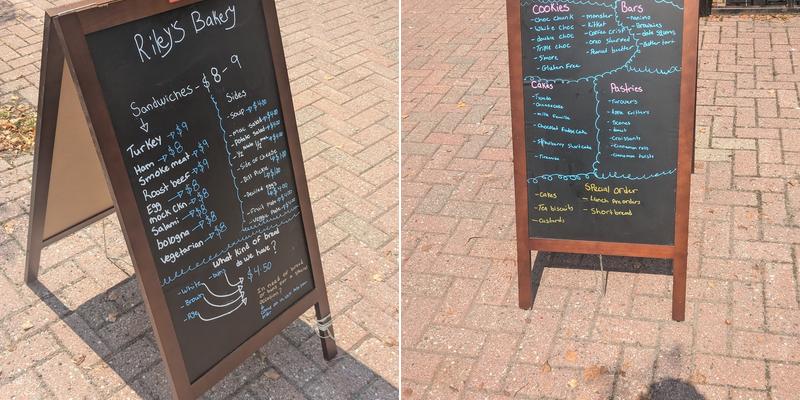 Riley's Bakery
Sandwiches - $8-9
Turkey → $9
Ham → $8
Smoke meat → $9
Roast beef → $9
Egg → $8
mock Chk → $8
Salami → $8
bologna → $8
Vegetarian → $8
Sides
- Soup
- mac Salad
- Potato Salad
- Side or Cheese
- Dill Pickle
- Deviled Eggs
- Fruit Plate
- Veggie Plate
What Kind of bread
do we have?
- White
- Brown
- Rye
$4.50
In need of bread
Cookies
- choc chunk
- White choc
- double choc
- Triple choc
- S'more
- Gluten Free
- monster
- KitKat
- Coffee crisp
- oreo stuffed
- Peanut butter
Bars
- nanimo
- Brownies
- date squares
- Butter tart
Cakes
- Cheesecake
- Chocolate Fudge Cake
- Strawberry Shortcake
- Tiramisu
Pastries
- Turnovers
- Apple fritters
- Scones
- donut
- Croissants
- Cinnamon rolls
- Cinnamon twists
Special order
- Cakes
- Tea biscuits
- Custards
- Lunch Pre orders
- Shortbread